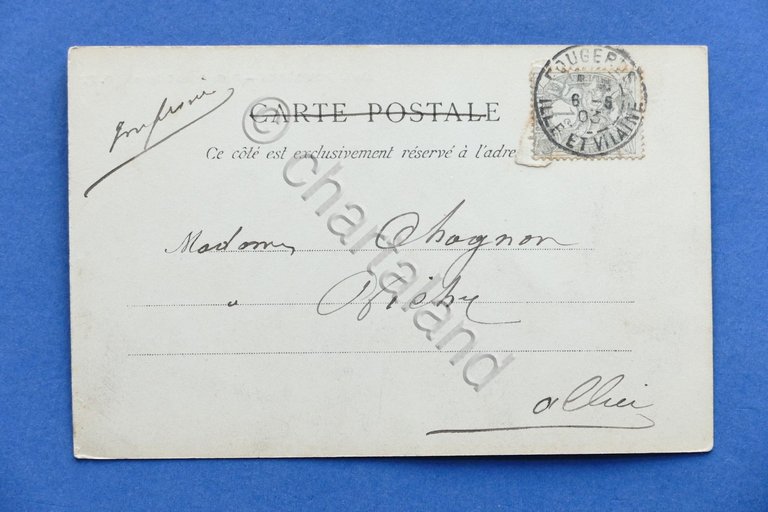 Imprimé
CARTE POSTALE
Ce côté est exclusivement réservé à l'adre
FOUGERES
6 -5
03
ILLE ET VILAINE
Madame Chagnon
à Vichy
Allier
© chartaland